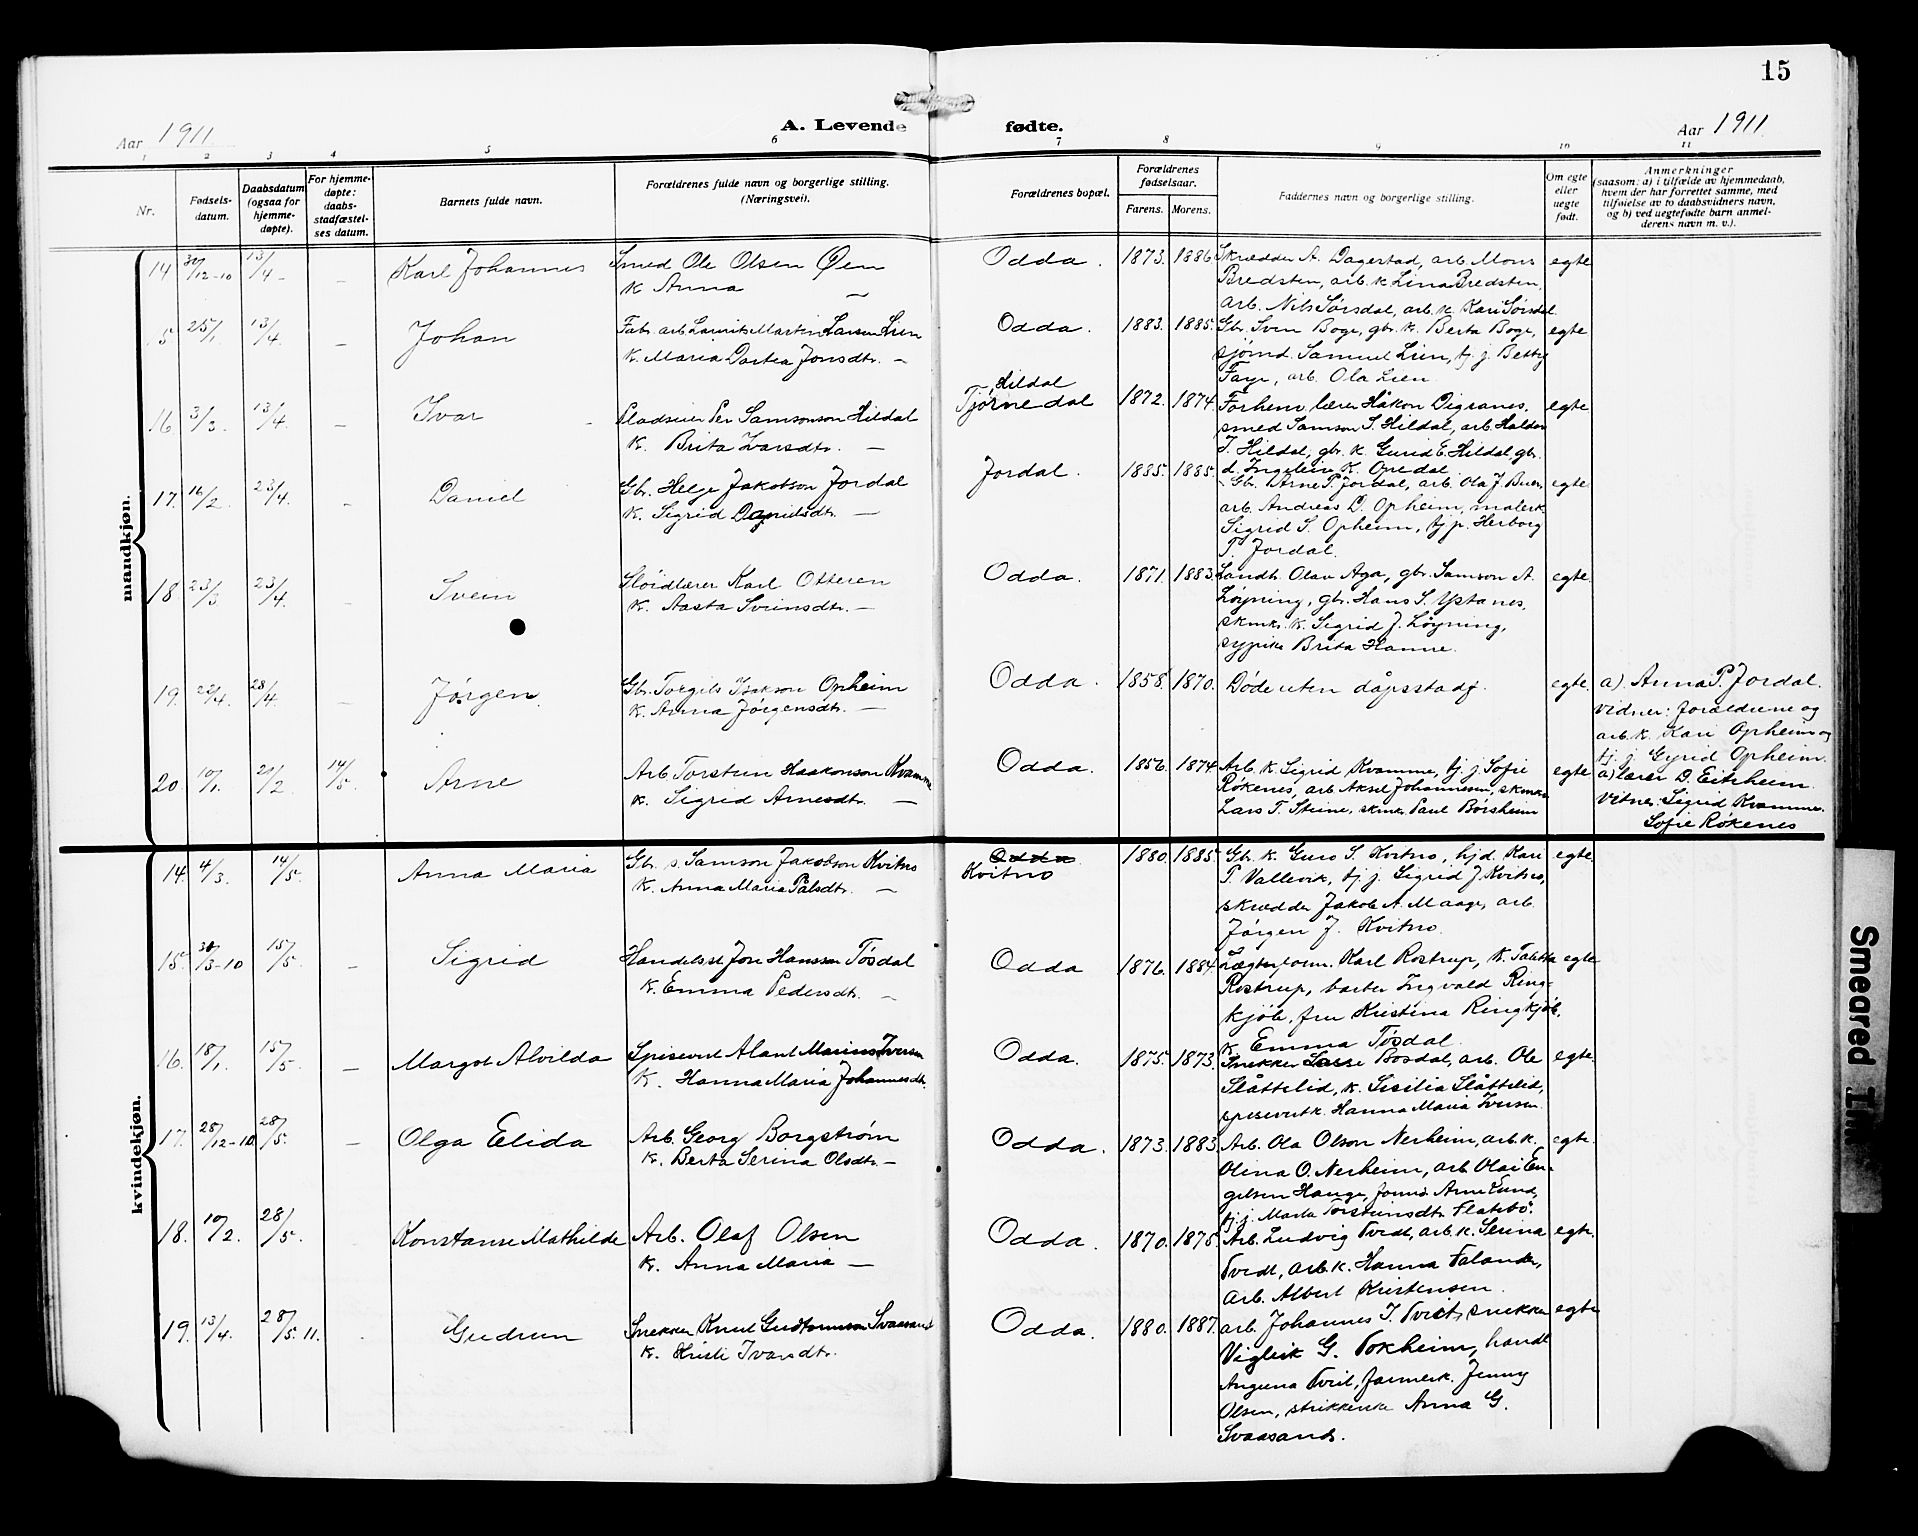 15
Aar 1911.
A. Levende fødte.
Aar 1911.
1 2 3 4 5 6 7 8 9 10 11
Nr.
Fødsels-
datum.
Daabsdatum
(ogsaa for
hjemme-
døpte).
For hjemme-
døpte:
daabs-
stadfæstel-
ses datum.
Barnets fulde navn.
Forældrenes fulde navn og borgerlige stilling.
(Næringsvei).
Forældrenes bopæl.
Forældrenes
fødselsaar.
Farens. Morens.
Faddernes navn og borgerlige stilling.
Om egte
eller
uegte
født.
Anmerkninger
(saasom: a) i tilfælde av hjemmedaab,
hvem der har forrettet samme, med
tilføielse av to daabsvidners navn,
og b) ved uegtefødte barn anmel-
derens navn m. v.).
mandkjøn.
14 30/12-10 13/4 - - Karl Johannes
Smed Ole Olsen Øen
K Anna —
Odda. 1873. 1886
Skrædder A. Dagestad, arb. Mons
Bredsten, arb. k Lina Bredsten,
arb. Nils Sørsdal, arb. k. Kari Sørsdal
egte
15 25/1 13/4. - Johan
Fabr. arb. Lauritz Martin Larsen Lien
K. Maria Dortea Jonsdtr. —
Odda. 1883. 1885.
Gbr. Sven Boge, gbr. k. Berta Boge,
sjömd. Samuel Lien, tj. j. Betsy
Faye, arb. Ola Lien.
egte
16. 3/3. 13/4. - Ivar
Pladseier Per Samsonson Hildal
K. Brita Ivarsdtr. —
Hildal
Tjørnedal 1872. 1874.
Forhenv. lærer Håkon Digranes,
smed Samson S. Hildal, arb. Halder
T. Hildal, gbr. k Gurid E. Hildal, gbr.
d. Ingeleiv K. Opedal
egte
17. 16/2. 23/4. - Daniel
Gbr. Helje Jakobson Jordal
K. Sigrid Danielsdtr. —
Jordal. 1885. 1885.
Gbr. Arne P. Jordal, arb. Ola J. Buer,
arb. Andreas D. Opheim, malerk.
Sigrid S. Opheim, tj. p. Herborg
T. Jordal.
egte
18. 23/3 23/4. - Svein
Sløidlærer Karl Otteren
K. Aasta Sveinsdtr. —
Odda. 1871. 1883.
Landh. Olav Aga, gbr. Samson A.
Løyning, gbr. Hans S. Ystanes,
snmkr. k. Sigrid J. Løyning,
sypike Brita Hamre.
egte
19. 22/4. 28/4. - Jørgen.
Gbr. Torgils Isakson Opheim
K. Anna Jørgensdtr. —
Odda. 1858. 1870.
Døde uten dåpsstadf.
egte.
a). Anna P. Jordal.
Vidner: forældrene og
arb. k. Kari Opheim og
tj. j. Gyrid Opheim.
20. 10/1. 21/2. 14/5. Arne
Arb. Torstein Haakonson Kvamme
K. Sigrid Arnesdtr. —
Odda. 1856. 1874.
Arb. k. Sigrid Kvamme, tj. j. Sofie
Røkenes, arb. Aksel Johannesen, skmkr.
Lars T. Steine, skmk. Paul Børsheim
egte
a) lærer D. Eitrheim
Vitner: Sigrid Kvamme.
Sofie Røkenes
kvindekjøn.
14. 4/3. 14/5. Anna Maria
Gbr. s. Samson Jakobson Kvitno
K. Anna Maria Pålsdtr. —
Odda
Kvitno 1880. 1885.
Gbr. k. Guro S. Kvitno, hjd. Kari
T. Vallevik, tj. j. Sigrid J Kvitno,
skrædder Jakob A. Maage, arb.
Jørgen J. Kvitno.
egte
15. 30/3-10 15/5. - Sigrid
Handelsst. Jon Hansson Tøsdal
K. Emma Pedersdtr. —
Odda 1876. 1884.
Lægterform. Karl Rostrup, K. Taletta
Rostrup, barber Ingvald Ring-
kjöb, fru Kristina Ringkjöb,
K Emma Tøsdal.
egte
16. 18/1. 15/5. - Margot Alvilda
Spisevert Alant Marius Iversen
K. Hanna Maria Johannesdtr.
Odda. 1875. 1873.
Snekker Lasse Bosdal, arb. Ole
Slåttelid, k. Sesilia Slåttelid,
spisevertk. Hanna Maria Iversen.
egte.
17. 28/12-10 28/5. - Olga Elida
Arb. Georg Borgstrøm
K. Berta Serina Olsdtr. —
Odda. 1873. 1883.
Arb. Ola Olson Nerheim, arb. k.
Olina O. Nerheim, arb. Olai En-
gelsen Hauge, Arne Lund,
tj. j. Marta Torsteinsdtr Flatebö.
egte.
18. 10/2. 28/5. Konstanse Mathilde
Arb. Olaf Olsen
K. Anna Maria —
Odda. 1870. 1875.
Arb. Ludvig Tvedt, arb. k. Serina
Tvedt, arb. k. Hanna Falander,
arb. Albert Kristensen.
egte.
19. 13/4. 28/5. 11. Gudrun
Snekker Knut Gudtormson Svaasand
K. Kristi Ivarsdtr.
Odda. 1880. 1887.
arb. Johannes I. Tveit, snekker
Vigleik G. Tokheim, handl.
Angunna Tveit, farmerk. Jenny
Olsen, strikkerske Anna G.
Svaasand.
egte
Smeared